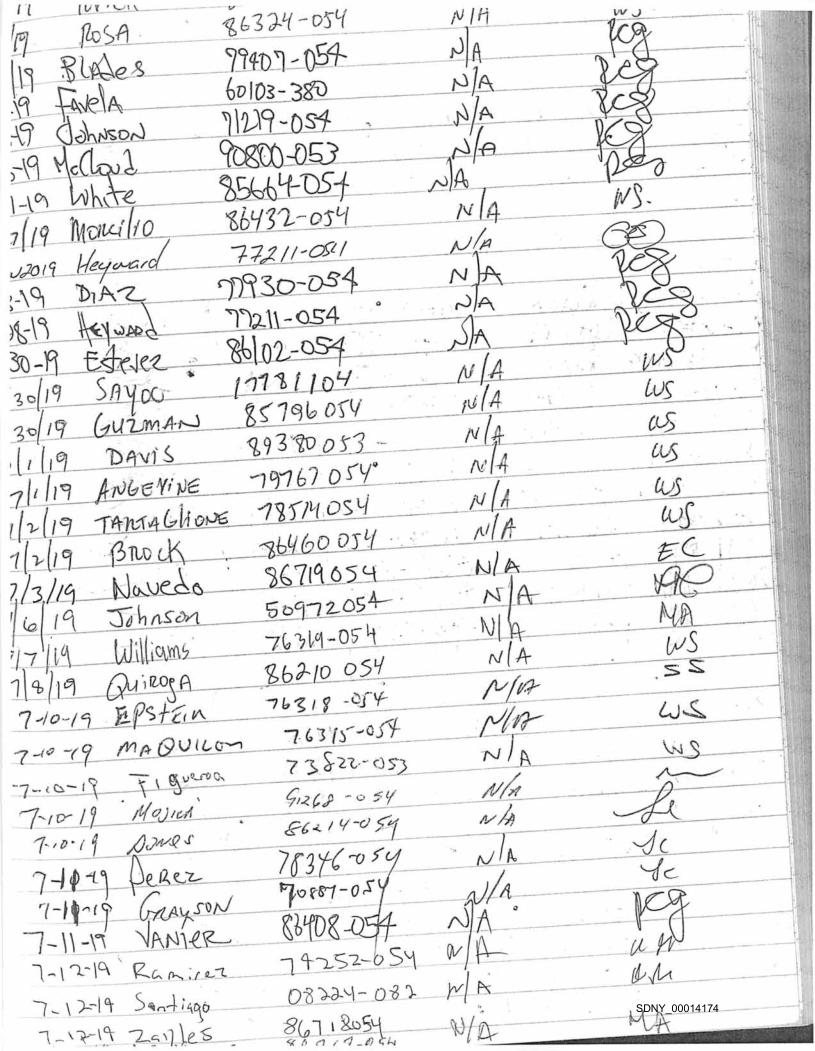 /19 ROSA 86324-054 N/A Pcg
/19 BLADes 79407-054 N/A Pcg
-19 FAvelA 60103-380 N/A Pcg
-19 JohNSON 71219-054 N/A Pcg
-19 McCloud 90800-053 N/A Pcg
1-19 White 85664-054 N/A WS.
7/19 Moncilio 86432-054 N/A
2019 Heyward 77211-054 N/A Pcg
-19 DiAZ 77930-054 N/A Pcg
8-19 HEYWARD 77211-054 N/A Pcg
30-19 Estevez 86102-054 N/A WS
30/19 SAYOC 17781104 N/A WS
30/19 GUZMAN 85796054 N/A WS
/1/19 DAVIS 89380053 N/A WS
7/1/19 ANGEVINE 79767 054 N/A WS
/2/19 TARTAGLIONE 78514054 N/A WS
7/2/19 BROCK 86460054 N/A EC
7/3/19 Navedo 86719054 N/A
/6/19 Johnson 50972054 N/A MA
/7/19 Williams 76319-054 N/A WS
7/8/19 QuirogA 86210 054 N/A SS
7-10-19 EPSTEin 76318-054 N/A WS
7-10-19 MAQUILON 76315-054 N/A WS
7-10-19 Figueroa 73822-053 N/A
7-10-19 Mojica 91268-054 N/A
7-10-19 86214-054 N/A Sc
7-10-19 PeREZ 78346-054 N/A Sc
7-11-19 GRAYSON 70887-054 N/A Pcg
7-11-19 VANIER 86408-054 N/A
7-12-19 Ramirez 79252-054 N/A
7-12-19 Santiago 08224-082 N/A
SDNY_00014174
7-12-19 86718054 N/A MA